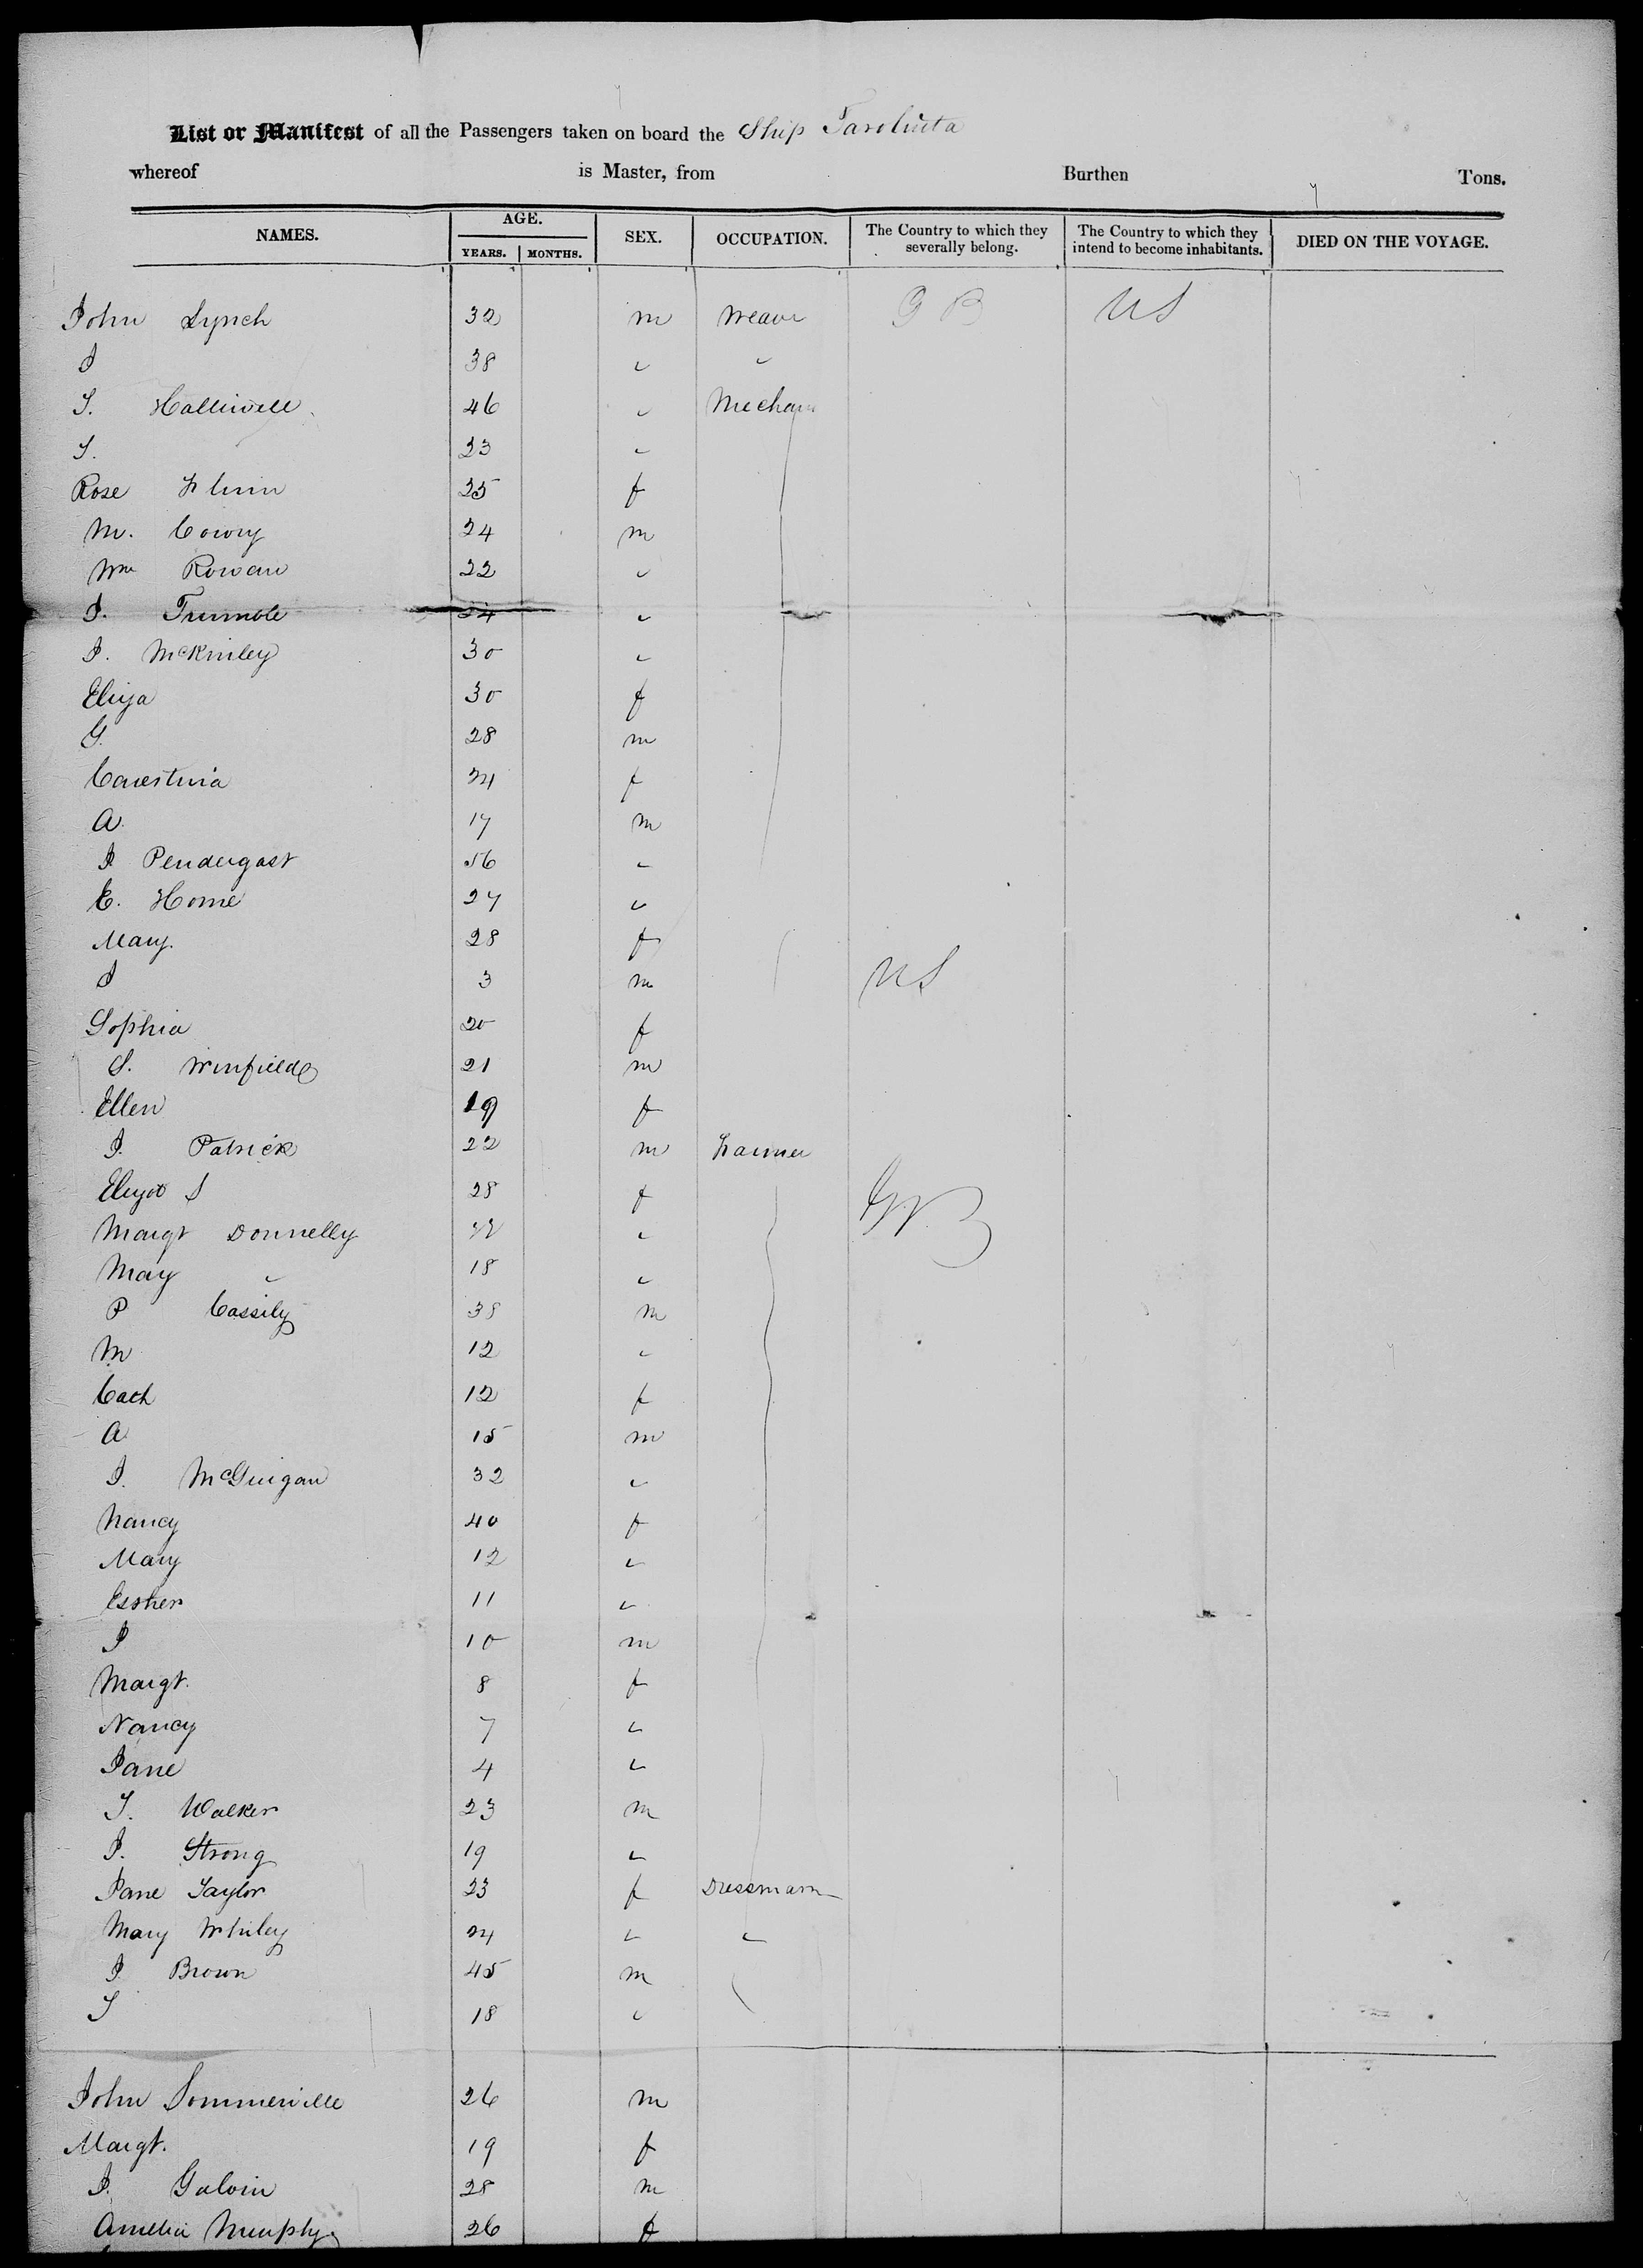 List or Manifest of all the Passengers taken on board the Ship Tarolinta
whereof is Master, from Burthen Tons.
NAMES. AGE. YEARS. MONTHS. SEX. OCCUPATION. The Country to which they severally belong. The Country to which they intend to become inhabitants. DIED ON THE VOYAGE.
John Lynch 32 m Weav GB US
J 38 " "
T. Halliwell 46 " Mechan
T. 23 "
Rose Flinn 25 f
M. Cowry 24 m
Wm Rowan 22 "
J. Trumble 24 "
J. McKinley 30 "
Eliza 30 f
G. 28 m
24 f
A. 17 m
J Pendergast 56 "
C. Horne 27 "
Mary. 28 f
J 3 m US
Sophia 20 f
S. Winfield 21 m
Ellen 19 f
J. Patrick 22 m Farmer
28 f GB
Margt Donnelly "
May " 18 "
P Cassily 38 m
M 12 "
Cath 12 f
A 15 m
J. McGuigan 32 "
Nancy 40 f
Mary 12 "
Essher 11 "
J 10 m
Margt. 8 f
Nancy 7 "
Jane 4 "
T. Walker 23 m
J. Strong 19 "
Jane Taylor 23 f Dressmam
Mary Whiley 24 " "
J Brown 45 m
T 18 "
John Sommerville 26 m
Margt. 19 f
J. Galvin 28 m
Amelia Murphy 26 f